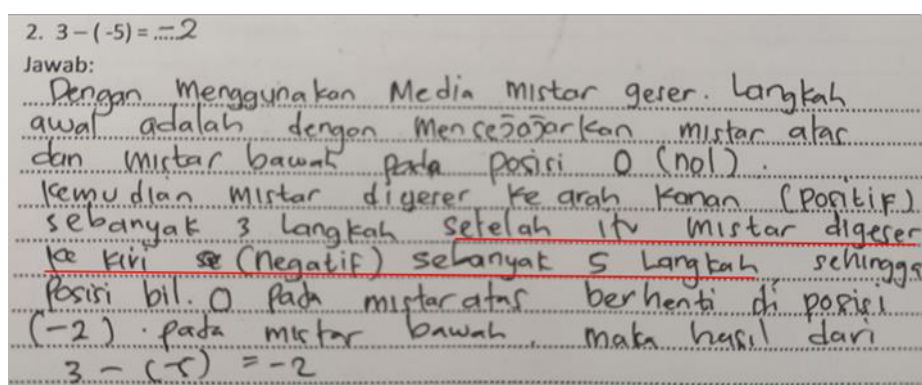 2. 3 – ( -5) = ..... -2
Jawab:
Dengan menggunakan Media mistar geser. Langkah
awal adalah dengan mensejajarkan mistar atas
dan mistar bawah pada posisi 0 (nol).
kemudian mistar digeser ke arah kanan (positif)
sebanyak 3 Langkah setelah itu mistar digeser
ke kiri (negatif) sebanyak 5 Langkah sehingga
Posisi bil. 0 pada mistar atas berhenti di posisi
(-2). pada mistar bawah, maka hasil dari
3 - (5) = -2